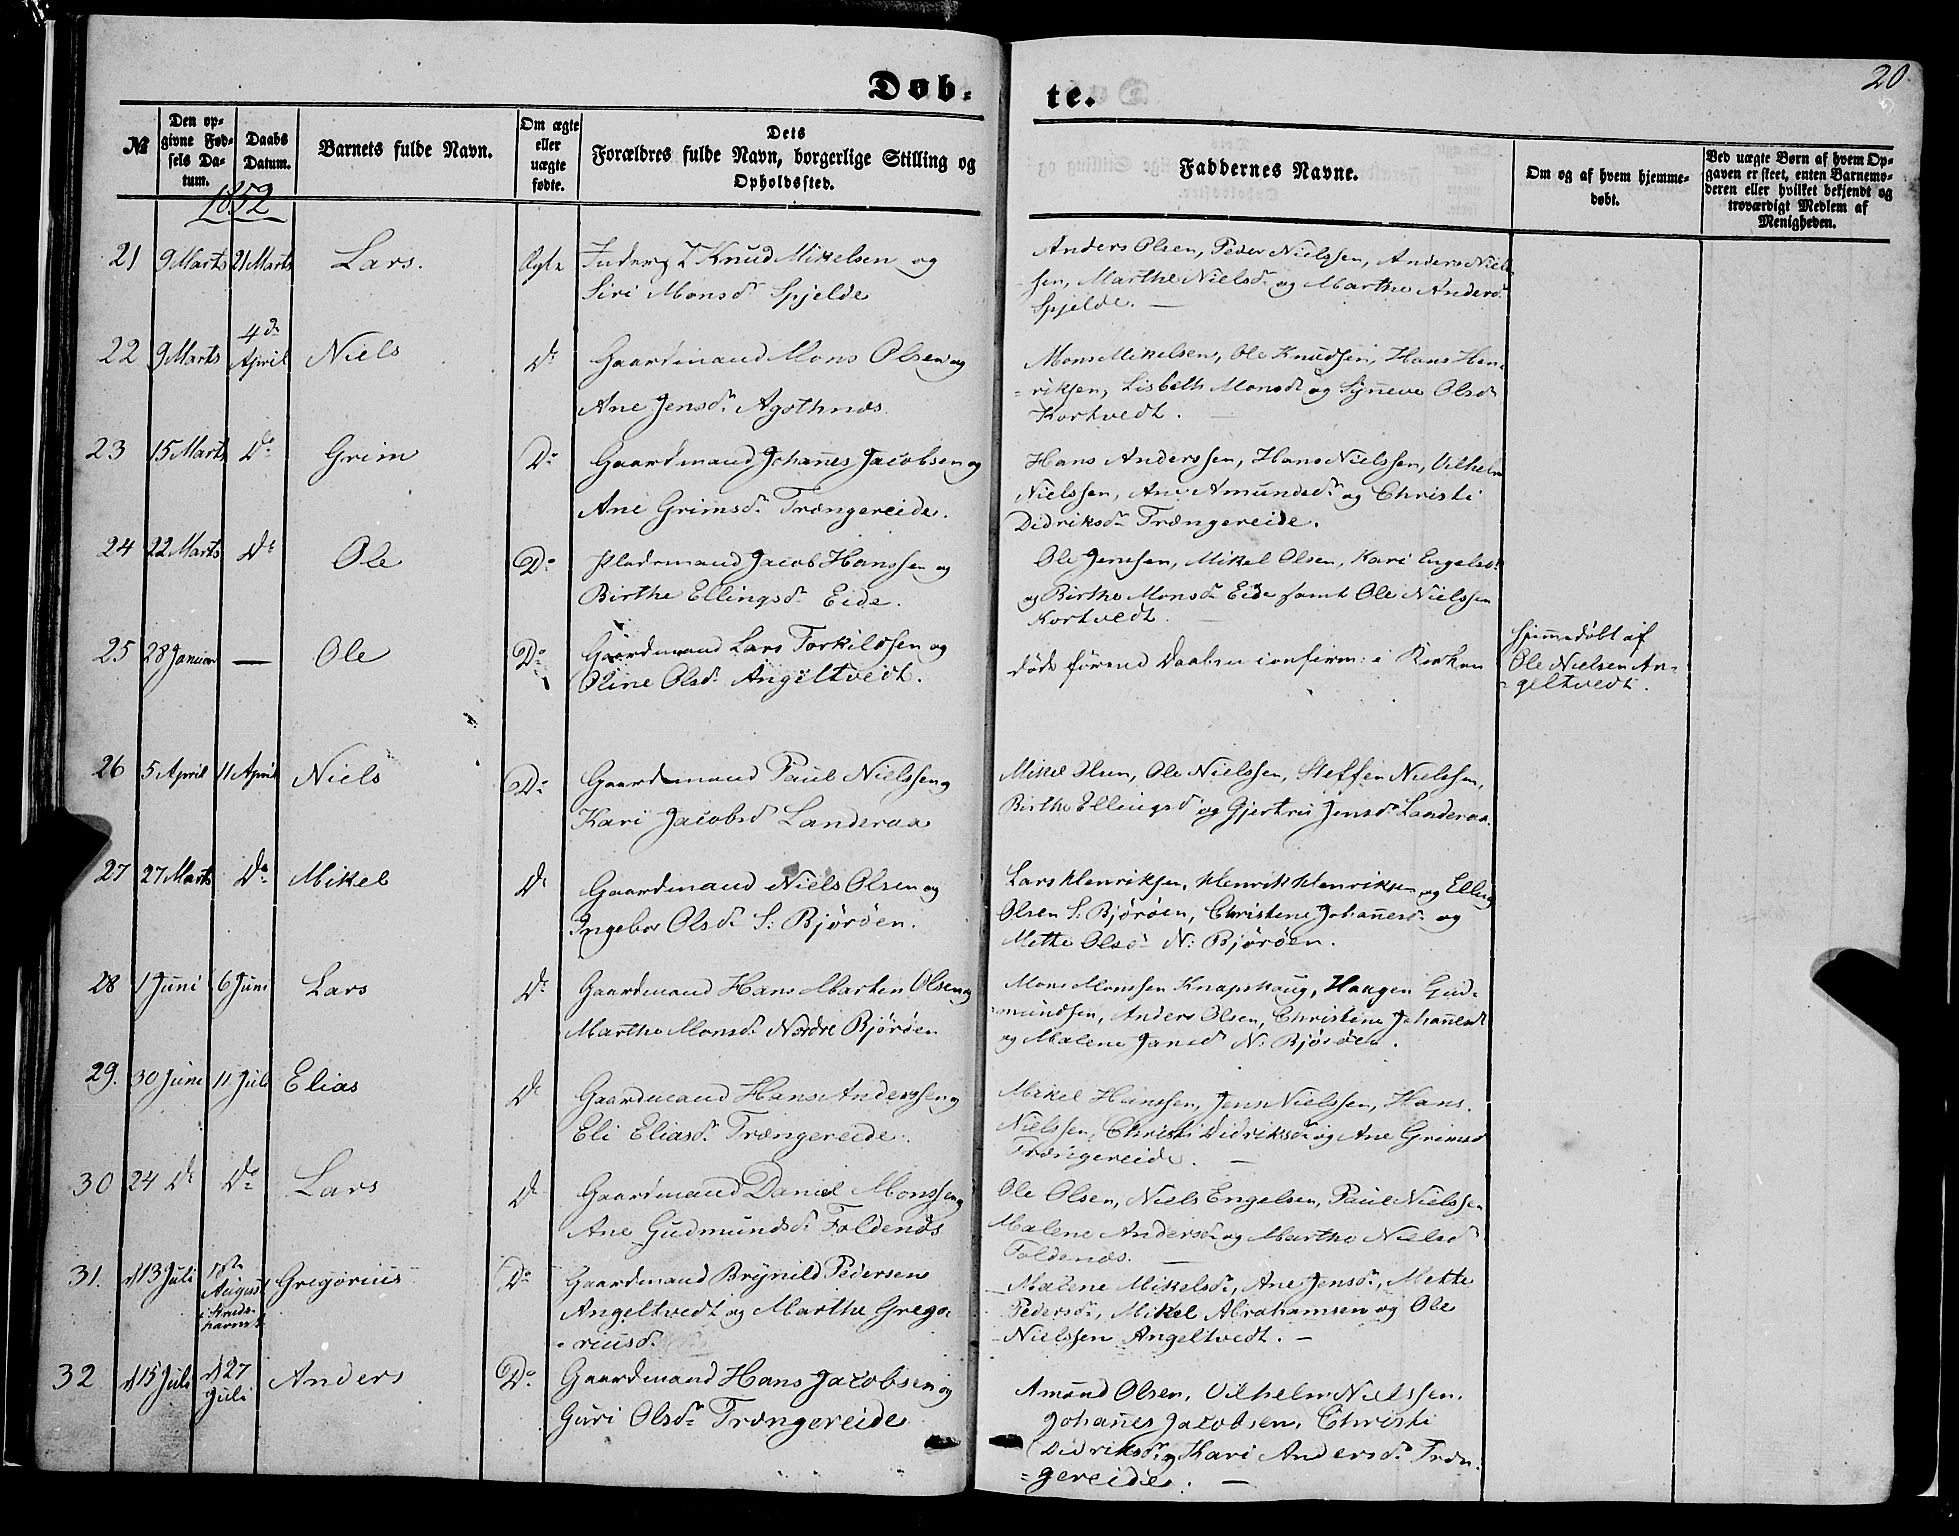 Døb-
te.
20
№
Den op-
givne Fød-
sels Da-
tum.
Daabs
Datum.
Barnets fulde Navn.
Om ægte
eller
uægte
fødte.
Dets
Forældres fulde Navn, borgerlige Stilling og
Opholdssted.
Faddernes Navne.
Om og af hvem hjemme-
døbt.
Ved uægte Børn af hvem Op-
gaven er skeet, enten Barnemo-
deren eller hvilket bekjendt og
troværdigt Medlem af
Menigheden.
1852
21 9 Marts 21 Marts Lars. Ægte
Knud Mikelsen og
Siri Monsd. Spjelde
Anders Olsen, Peder Nielssen, Anders Niels
sen, Marthe Nielsd. og Marthe Andersd.
Spjelde. —
22 9 Marts 4de April Niels Do
Gaardmand Mons Olsen og
Ane Jensd. Agothnæs
Mons Mikelsen, Ole Knudsen, Hans Hen-
-riksen, Lisbeth Monsd og Synneve Olsd
Kortvedt. —
23 15 Marts Do Grim Do
Gaardmand Johannes Jacobsen og
Ane Grimsd. Trængereide.
Hans Anderssen, Hans Nielssen, Vilhelm
Nielssen, Ane Amundsd. og Christi
Didriksd. Trængereide.
24 22 Marts Do Ole Do
Pladsmand Jacob Hanssen og
Birthe Ellingsd. Eide.
Ole Jenssen, Mikel Olsen, Kari Engelsd.
og Birthe Monsd. Eide samt Ole Nielssen
Kortvedt. —
25 28 Januar — Ole Do
Gaardmand Lars Torkildsen og
Oline Olsd. Angeltvedt.
døde førend Daaben confirm: i Kirken
hjemmedøbt af
Ole Nielsen An-
-geltvedt.
26 5 April 11 April Niels Do
Gaardmand Paul Nielssen og
Kari Jacobsd Landeraa
Mikel Olsen, Ole Nielssen, Steffen Nielssen,
Birthe Ellingsd og Gjertru Jensd. Landeraa.
27 27 Marts Do Mikel Do
Gaardmand Niels Olsen og
Ingebor Olsd S: Bjørøen.
Lars Henriksen, Henrik Henriksen og Elling
Olsen S: Bjørøen, Christene Johannesd. og
Mette Olsd N: Bjørøen.
28 1 Juni 6 Juni Lars Do
Gaardmand Hans Martin Olsen og
Marthe Monsd. Nordre Bjørøen
Mons Monssen Knapskaug, Haagen Gud-
-mundsen, Anders Olsen, Christine Johannesd
og Malene Jansd N: Bjørøen.
29. 30 Juni 11 Juli Elias Do
Gaardmand Hans Anderssen og
Eli Eliasd. Trængereide.
Mikel Hanssen, Jens Nielssen, Hans
Nielssen, Christi Didriksd. og Ane Grimsd
Trængereide. —
30 24 Do Do Lars Do
Gaardmand Daniel Monssen og
Ane Gudmundsd. Foldenæs
Ole Olsen, Niels Engelsen, Paul Nielssen
Malene Andersd og Marthe Nielsd
Foldenæs. —
31. d 13 Juli 1ste August i Gregorius Do
Gaardmand Brynild Pedersen
Angeltvedt og Marthe Grego-
-riusd.
Malene Mikelsd., Ane Jensd., Mette
Pedersd., Mikel Abrahamsen og Ole
Nielssen Angeltvedt. —
32 d 15 Juli d 27 Juli Anders Do
Gaardmand Hans Jacobsen og
Guri Olsd. Trængereide
Amund Olsen, Vilhelm Nielssen,
Johannes Jacobsen, Christi
Didriksd. og Kari Andersd. Træn-
-gereide. —